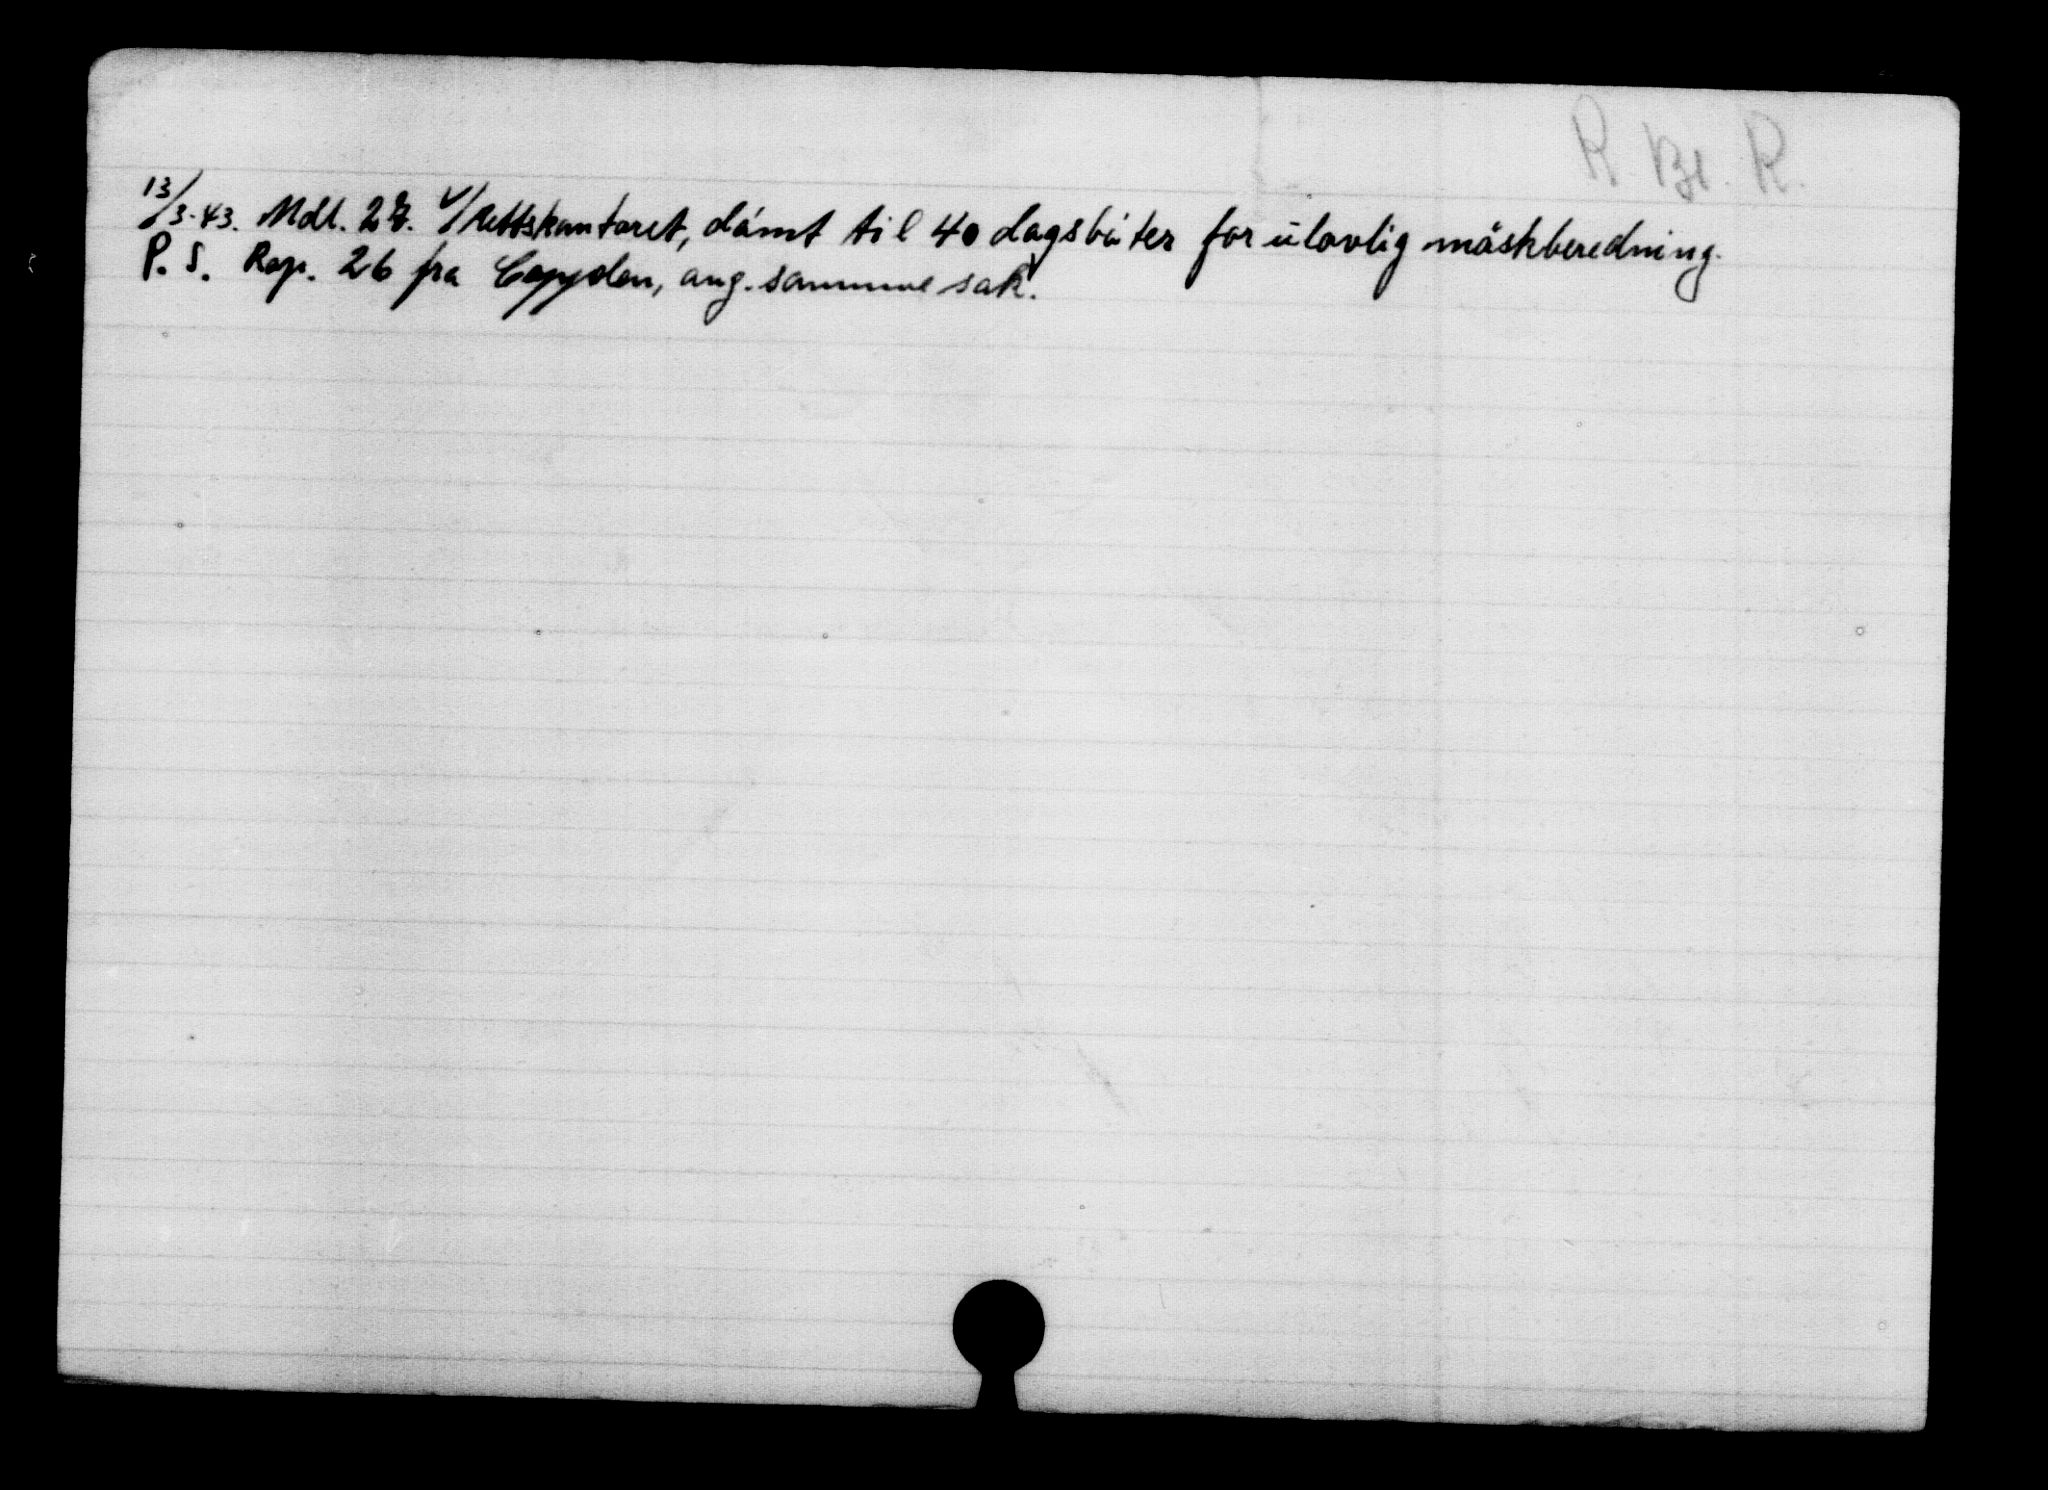 R. Bl. R.
13/3-43. Mdl. 27. V/Rettskontoret, dömt til 40 dagsböter for ulovlig mäskberedning.
P. S. Rap. 26 fra Coyolen, ang. samme sak.